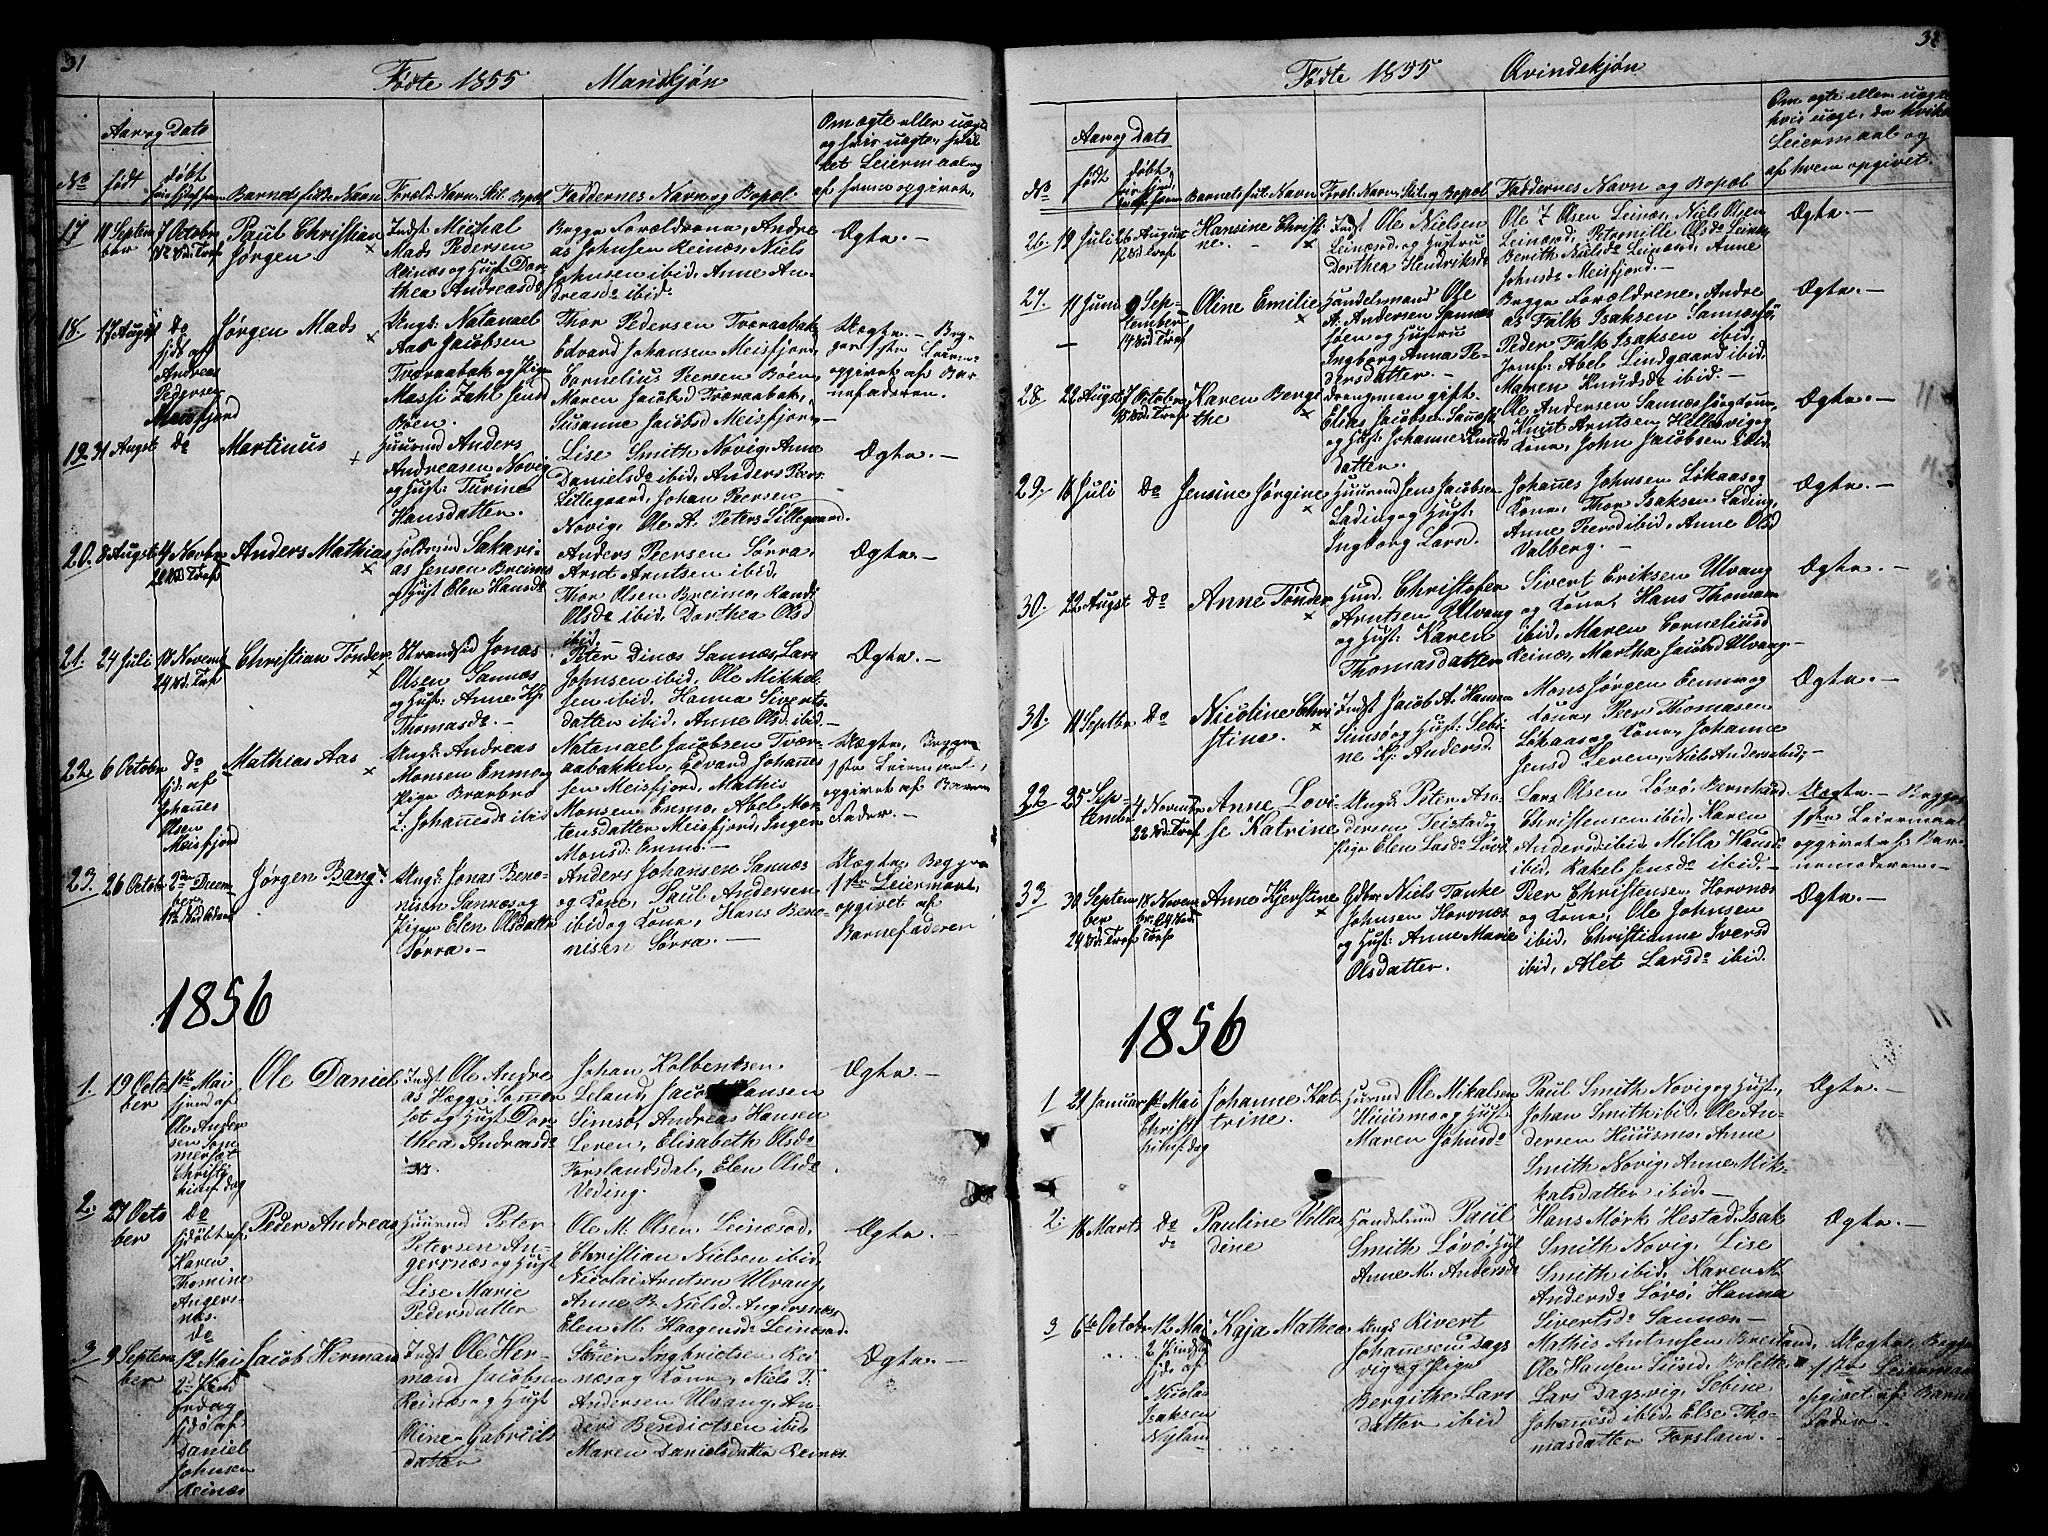 31
Fødte 1855 Mandkjøn
Aar og Dato
No
født
døbt
Barnets fulde Navn
Foræld: Navn, Stil. Bopæl
Faddernes Navn og Bopæl
Om ægte eller uægte
og hvis uægte, hvil
ket Leiermaal og
af hvem opgivet.
17
11 Septem
ber
7 October
Paul Christian
Jørgen
Indst Michal
Mads Pedersen
Reinæs og Hust Dor
thea Andreasd:
Begge Forældrene, Andre
as Johnsen Reinæs, Niels
Johnsen ibid, Anne An
dreasd: ibid:
Ægte. —
18
17 August
Do
hjdt af
Andreas
Pedersen
Meisfjord
Jørgen Mads
Ungk: Natanael
Aas Jacobsen
Tværaabak og Pige
Massi Zahl Jensd
Boen.
Thor Pedersen Tværaabak,
Edvard Johansen Meisfjord,
Cornelius Peersen Boen,
Maren Jacobsd Tværaabak,
Susanne Jacobsd Meisfjord. —
Uægte. — Beg-
ges 1ste Leierm:
opgivet af Bar
nefaderen.
19
31 Augst
Do
Martinus
Huusmd Anders
Andreasen Novig
og Hust: Turine
Hansdatter.
Lise Smith Novig, Anne
Danielsd: ibid, Anders Peers
Lillegaard, Johan Peersen
Novig, Ole A. Peters Lillegaard.
Ægte. —
20.
8 August
4 Novbr
Anders Mathias
Gaardmd Sakari-
as Jensen Breimo
og Hust Elen Hansd:
Anders Peersen Sørra,
Arnt Arntsen ibid,
Thor Olsen Breimo, Randi
Olsd: ibid, Dorthea Olsd
ibid. —
Ægte. —
21.
24 Juli
18 Novem
Christian Tønder
Strandsid Jonas
Olsen Sannæs
og Hust: Anne Kj:
Thomasd: —
Peter Dinæs Sannæs, Lars
Johnsen ibid, Ole Mikkel
sen ibid, Hanna Siverts-
datter ibid, Anne Olsd: ibid —
Ægte. —
22.
6 Octobr
Do
hjd: af
Johannes
Olsen
Meisfjord
Mathias Aas
Ungk: Andreas
Monsen Enmo og
Pige Brarbro
L: Johannesd: ibid
Natanael Jacobsen Tvær-
aabakken, Edvard Johannes
sen Meisfjord, Mathis
Monsen Enmo, Abel Mor-
tensdatter Meisfjord, Inger
Monsd: Enmo. —
Uægte, Begges
1ste Leiermaal,
opgivet af Barnets
Fader. —
23.
26 Octobr
2den Decem-
ber
Jørgen Bang:
Ungk: Jonas Beno-
nisen Sannæs og
Pige Elen Olsdatter
Sørra. —
Anders Johansen Sannæs
og Kone, Paul Andersen
ibid og Kone, Hans Beno-
nisen Sørra. —
Uægte, Begges
1ste Leiermaal,
opgivet af
Barnefaderen
1856
1.
19 Octo
ber
1ste Mai
hjemd af
Ole Ander
sen Som
mersæt
Christi
himf. dag
Ole Daniel
Indst Ole Andre
as Hegge Sommer
sæt og Hust Dor
thea Andreasd:
Johan Kolbentsen
Leland, Jacob Hansen
Simsø, Andreas Hansen
Leren, Elisabeth Olsd:
Forslandsdal, Elen Olsd:
Veding.
Ægte —
2.
27 Octo
ber
Do
hjdøbt af
Karen
Thomine
Angers-
næs.
Do
Peder Andreas
Huusmd Peter
Petersen An-
gersnæs og Hust
Lise Marie
Pedersdatter
Ole M. Olsen Leinæsød,
Christian Nielsen ibid,
Nicolai Arntsen Ulvang,
Anne B. Nielsd. Angersnæs,
Elen M. Haagensd: Leinæsød.
Ægte. —
3
9 Septem
ber
12 Mai
2den Pind
sedag
hjdø af
Daniel
Johnsen
Reinæs
Jacob Herman
Indst Ole Her-
mand Jacobsen
Reinæs og Hust
Oline Gabriels
datter
Steen Ingbrictsen Rei
næs og Kone, Niels T.
Andersen Ulvang, An-
ders Bendictsen ibid
Maren Danielsdatter Reinæs.
Ægte. —
32
Fødte 1855 Qvindekjøn
Aar og Dato
No
født
døbt
Barnets fule Navn
Foræl: Navn, Stil, og Bopæl
Faddernes Navn og Bopæl
Om ægte eller uægte
hvis uægt, da hvilket
Leiermaal og
af hvem opgivet.
26
19 Juli
26 August
Hansine Christi
ne. —
Indst Ole Nielsen
Leinæsød og Hustru
Dorthea Hendriksd:
Ole Z Olsen Leinæs, Niels Olsen
Leinæsød, Petronille Olsd: Leinæs
Berith Paulsd: Leinæsød, Anne
Johnsd: Meisfjord. —
Ægte —
27.
11 Juni
9 Sep-
tember
Oline Emilie
Handelsmand Ole
A. Andersen Sannæs
søen og Hustru
Ingborg Anna Pe-
dersdatter. —
Begge Forældrene, Andre
as Falk Isaksen Sannæssø
Peder Falk Isaksen ibid,
Jomf: Abel Lindgaard ibid,
Maren Knudsd: ibid. —
Ægte. —
28.
22 August
7 October
Karen Berge
the
drengman gift
Elias Jacobsen Sannæs
og Hust: Johanne Knuds
datter.
Ole Andersen Sannæs
Knut Arntsen Hellesvig og
Kone, John Jacobsen ibid
Ægte. —
29.
16 Juli
Do
Jensine Jørgine
Huusmd Jens Jacobsen
Lading og Hust,
Ingborg Larsd.
Johannes Johnsen Løkaas og
Kone, Thor Isaksen Lading,
Anne Peersd ibid, Anne Olsd
Valberg. —
Ægte —
30.
22 Augst
Do
Anne Tønder
Husd. Christofer
Arntsen Ulvang
og Hust: Karen
Thomasdatter
Sivert Eriksen Ulvang
og Kone, Hans Thomasen
ibid, Maren Corneliusd
Reinæs, Martha Jacobsd Ulvang —
Ægte. —
31.
11 Septbr
Do
Nicoline Chri
stine.
Indst Jacob A. Hansen
Simsø og Hust: Sebi-
ne Kj: Andersd.
Mons Jørgen Eenmo og
Kone, Peer Thomasen
Løkaas og Kone, Johanne
Jensd Leren, Niels Anders ibid, —
Ægte. —
32
25 Sep-
tember
4 Novem
Anne Lovi-
se Katrine
Ungk: Peter An-
dersen Teistad og
Pige Elen Lasd: Løvø
Lars Olsen Løvø, Bernhard
Christensen ibid, Karen
Andersd ibid, Milla Hansd:
ibid, Rakel Jensd: ibid. —
Uægte — Begges
1ste Leiermaal
opgivet af Bar
nemoderen. —
33
30 Septem
ber
18 Novem
Anne Kjerstine
Gdbr Niels Tanke
Johnsen Horvnæs
og Hust: Anne Marie
Olsdatter.
Peer Christensen Horvnæs
og Kone, Ole Johnsen
ibid, Christianna Iversd
ibid, Alet Larsd: ibid.
Ægte. —
1856
1
21 Januar
1ste Mai
Christi
himf: dag
Johanne Kat-
trine.
Huusmd Ole Mikalsen
Huusmo og Hust
Maren Johnsd:
Paul Smith Novig og Hust,
Johan Smith ibi, Ole An-
dersen Huusmo, Anne
Smith Novig, Anne Mik-
kalsdatter ibid. —
Ægte. —
2.
16 Marts
Do
Do
Pauline Villa
dine
Handelsmd Paul
Smith Løvø, Hust
Anne M. Andersd
Hans Mørk Hestad, Isak
Smith Novig, Lise
Smith ibid, Karen M.
Andersd: Løvø, Hanna
Sivertsd: Sannæs —
Ægte. —
3
6te Octobr
12 Mai
2 Pindsd
hjd: af
Nicolai
Isaksen
Nyland
Kaja Mathea
Ungk Sivert
Johanesen Dags
vig og Pige
Bergithe Lars
datter ibid
Mathis Antonsen Breiland,
Ole Hansen Sund, Bolette
Lars Dagsvig, Sebine
Johanesd ibid, Else Tho-
masdatter Forsland. —
Uægte, Begges
1ste Leiermaal
opgivet af Barne
Fader. —